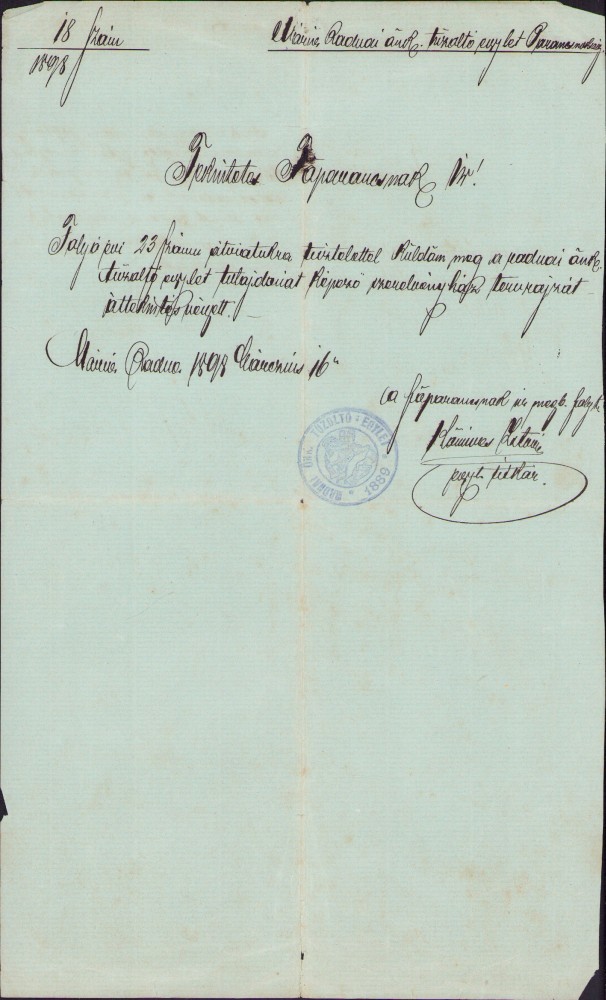 18 szám
1898
Mária Radnai önk. tűzoltó egylet Parancsnokság.
Tekintetes Főparancsnok Úr!
Folyó évi 23 számu átiratukra tisztelettel küldöm meg a radnai önk.
tűzoltó egylet tulajdonát képező szerelvényház tervrajzát
áttekintés végett. –
Mária Radna 1898 Március 16
a főparancsnok úr megb. folyt.
István
egyl. titkár.
RADNAI ÖNK. TŰZOLTÓ EGYLET
* 1889 *